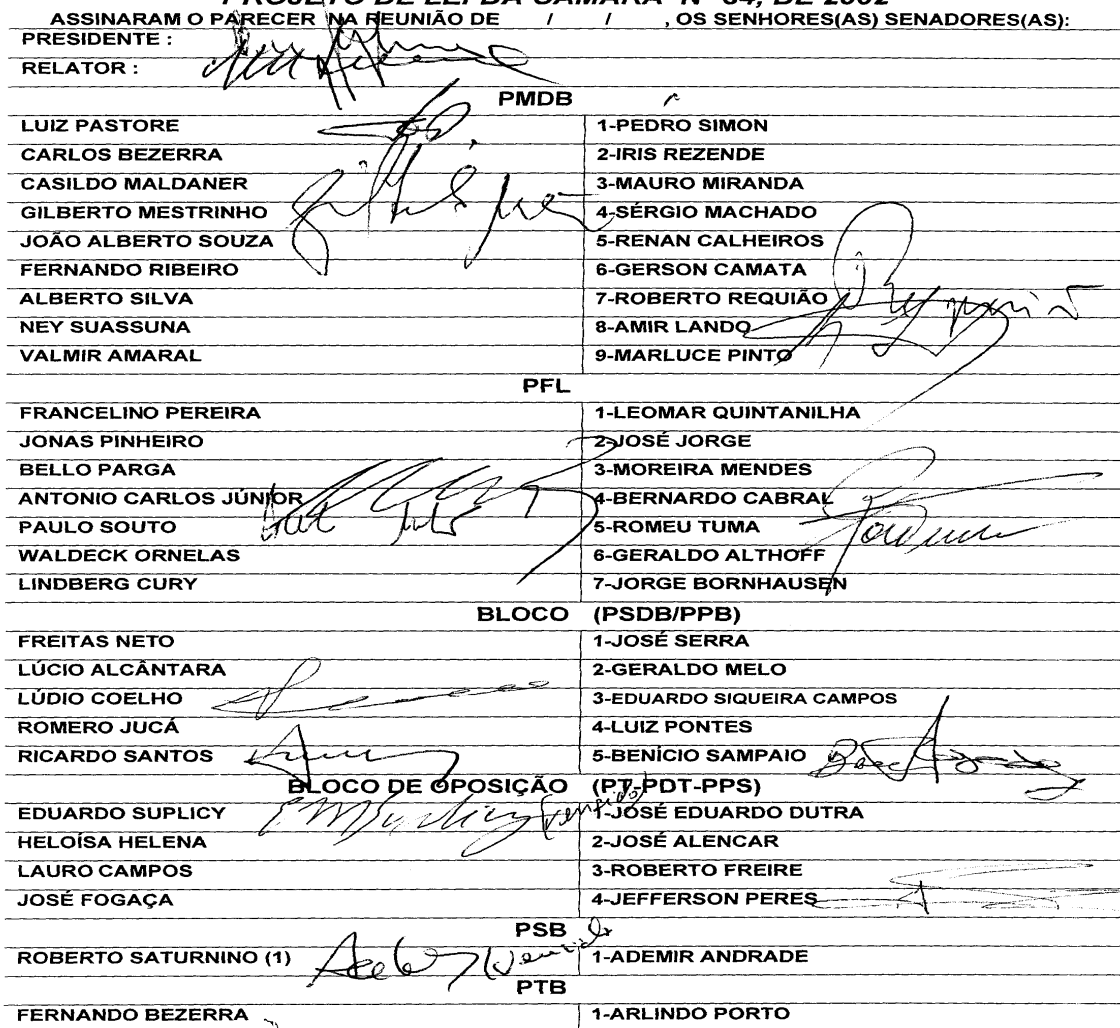 PROJETO DE LEI DA CÂMARA Nº 64, DE 2002
ASSINARAM O PARECER NA REUNIÃO DE / / , OS SENHORES(AS) SENADORES(AS):
PRESIDENTE :
RELATOR :
PMDB
LUIZ PASTORE 1-PEDRO SIMON
CARLOS BEZERRA 2-IRIS REZENDE
CASILDO MALDANER 3-MAURO MIRANDA
GILBERTO MESTRINHO 4-SÉRGIO MACHADO
JOÃO ALBERTO SOUZA 5-RENAN CALHEIROS
FERNANDO RIBEIRO 6-GERSON CAMATA
ALBERTO SILVA 7-ROBERTO REQUIÃO
NEY SUASSUNA 8-AMIR LANDO
VALMIR AMARAL 9-MARLUCE PINTO
PFL
FRANCELINO PEREIRA 1-LEOMAR QUINTANILHA
JONAS PINHEIRO 2-JOSÉ JORGE
BELLO PARGA 3-MOREIRA MENDES
ANTONIO CARLOS JÚNIOR 4-BERNARDO CABRAL
PAULO SOUTO 5-ROMEU TUMA
WALDECK ORNELAS 6-GERALDO ALTHOFF
LINDBERG CURY 7-JORGE BORNHAUSEN
BLOCO (PSDB/PPB)
FREITAS NETO 1-JOSÉ SERRA
LÚCIO ALCÂNTARA 2-GERALDO MELO
LÚDIO COELHO 3-EDUARDO SIQUEIRA CAMPOS
ROMERO JUCÁ 4-LUIZ PONTES
RICARDO SANTOS 5-BENÍCIO SAMPAIO
BLOCO DE OPOSIÇÃO (PT-PDT-PPS)
EDUARDO SUPLICY (vencido) 1-JOSÉ EDUARDO DUTRA
HELOÍSA HELENA 2-JOSÉ ALENCAR
LAURO CAMPOS 3-ROBERTO FREIRE
JOSÉ FOGAÇA 4-JEFFERSON PERES
PSB
ROBERTO SATURNINO (1) 1-ADEMIR ANDRADE
PTB
FERNANDO BEZERRA 1-ARLINDO PORTO